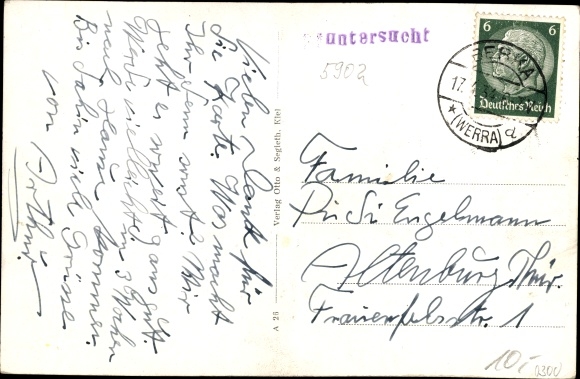 Vielen Dank für
die Karte. Was macht
Ihr denn sonst? Mir
geht es soweit ganz gut.
Werde vielleicht in 3 Wochen
nach Hause kommen.
Bis dahin viele Grüsse
von Arthur
Verlag Otto & Segleth, Kiel
A 26
untersucht
5902
6 6
Deutsches Reich
17.
(WERRA) d
Familie
Engelmann
Altenburg Thür.
Frauenfelsstr. 1
10,-